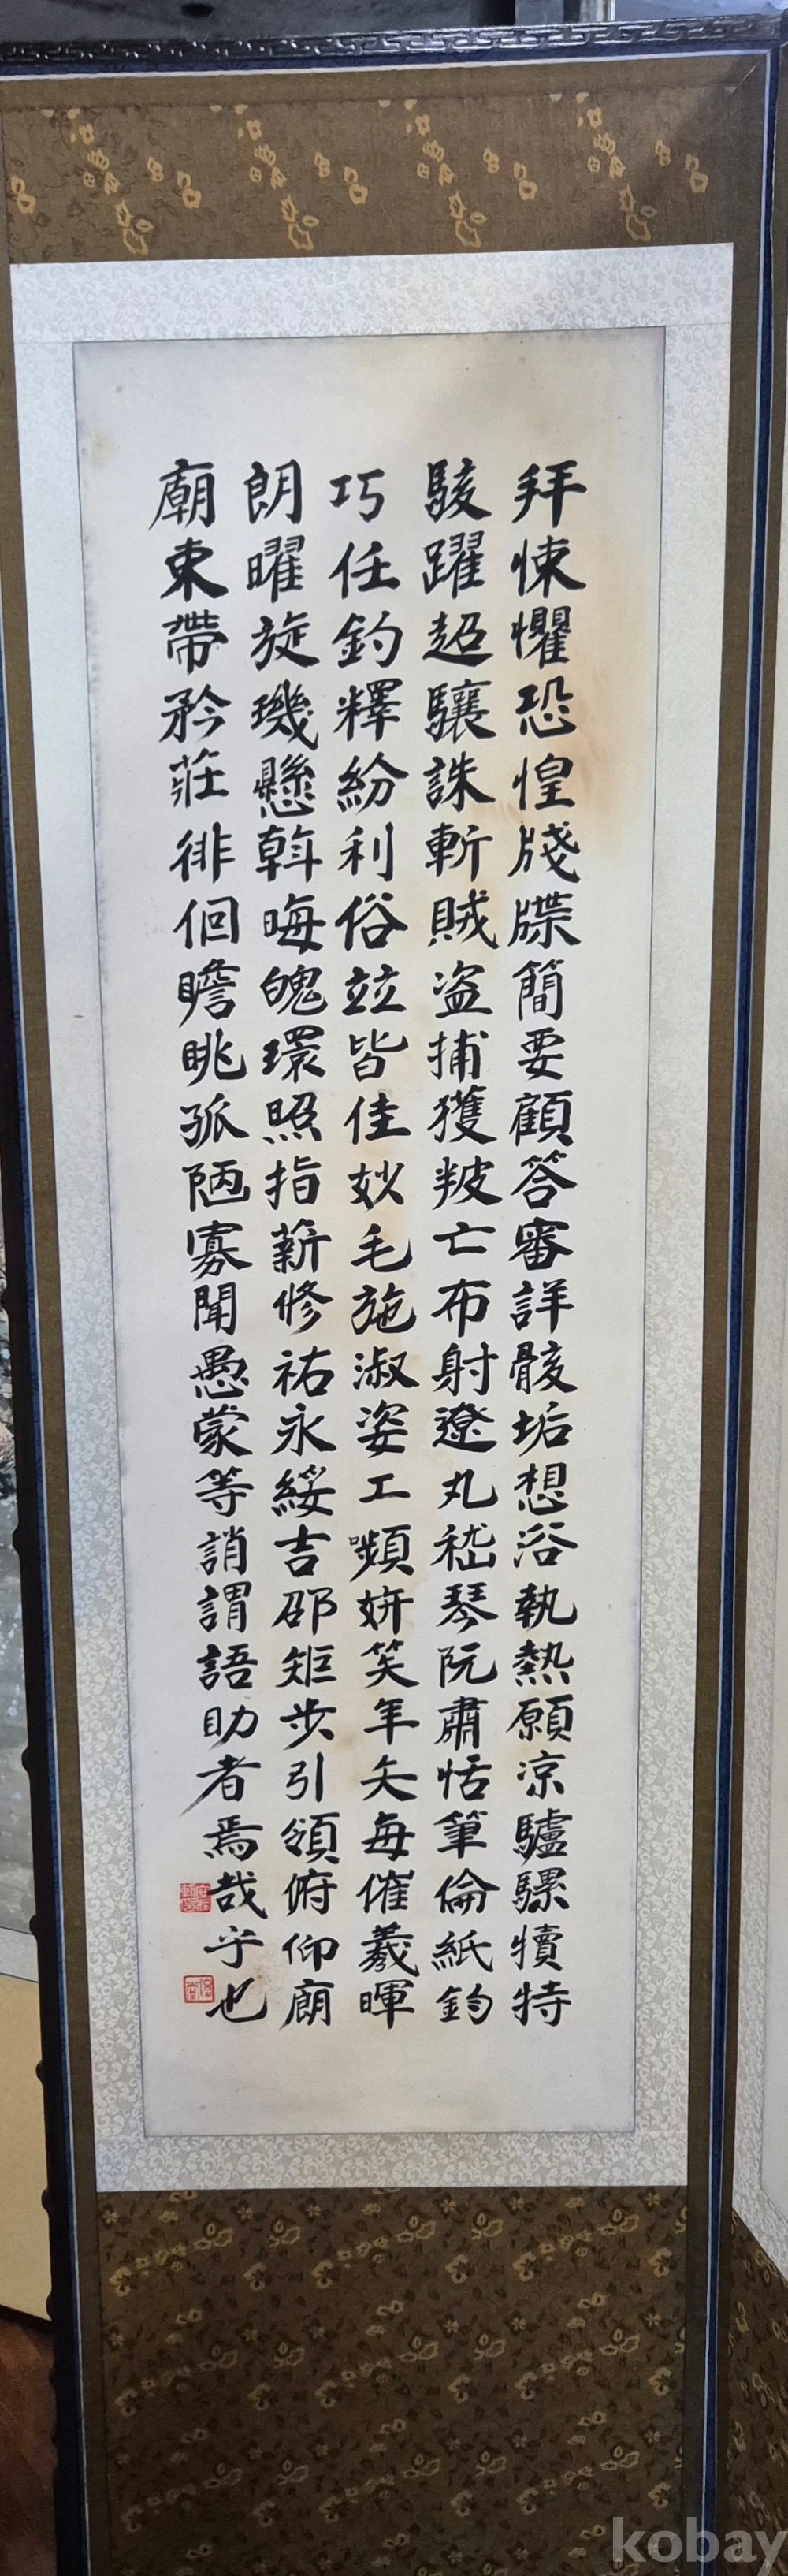 拜悚懼恐惶牋牒簡要顧答審詳骸垢想浴執熱願凉驢騾犢特
駭躍超驤誅斬賊盗捕獲叛亡布射遼丸嵇琴阮肅恬筆倫紙鈞
巧任釣釋紛利俗竝皆佳妙毛施淑姿工嚬姸笑年矢每催羲暉
朗曜旋璣懸斡晦魄環照指薪修祐永綏吉邵矩步引領俯仰廊
廟束帶矜莊徘徊瞻眺孤陋寡聞愚蒙等誚謂語助者焉哉乎也
kobay